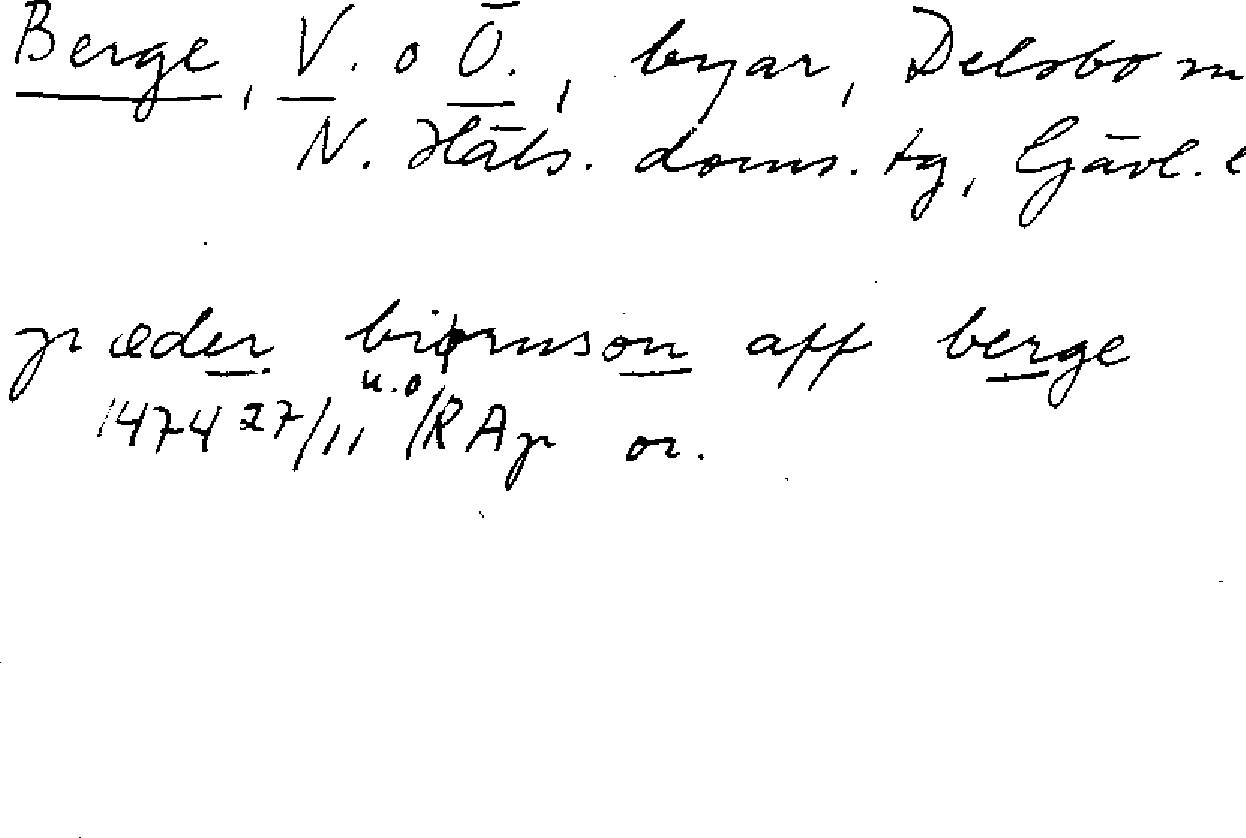 Berge, V. o Ö., byar, Delsbo sn
N. Häls. doms. tg, Gävl. l
pæder biørnson aff berge
u.o.
1474 27/11 RAp or.